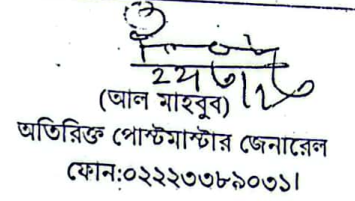 (আল মাহবুব)
অতিরিক্ত পোস্টমাস্টার জেনারেল
ফোন:০২২২৩৩৮৯০৩১।